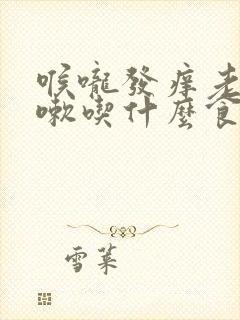 喉嚨發痒老
嗽喫什麼食
雪菜